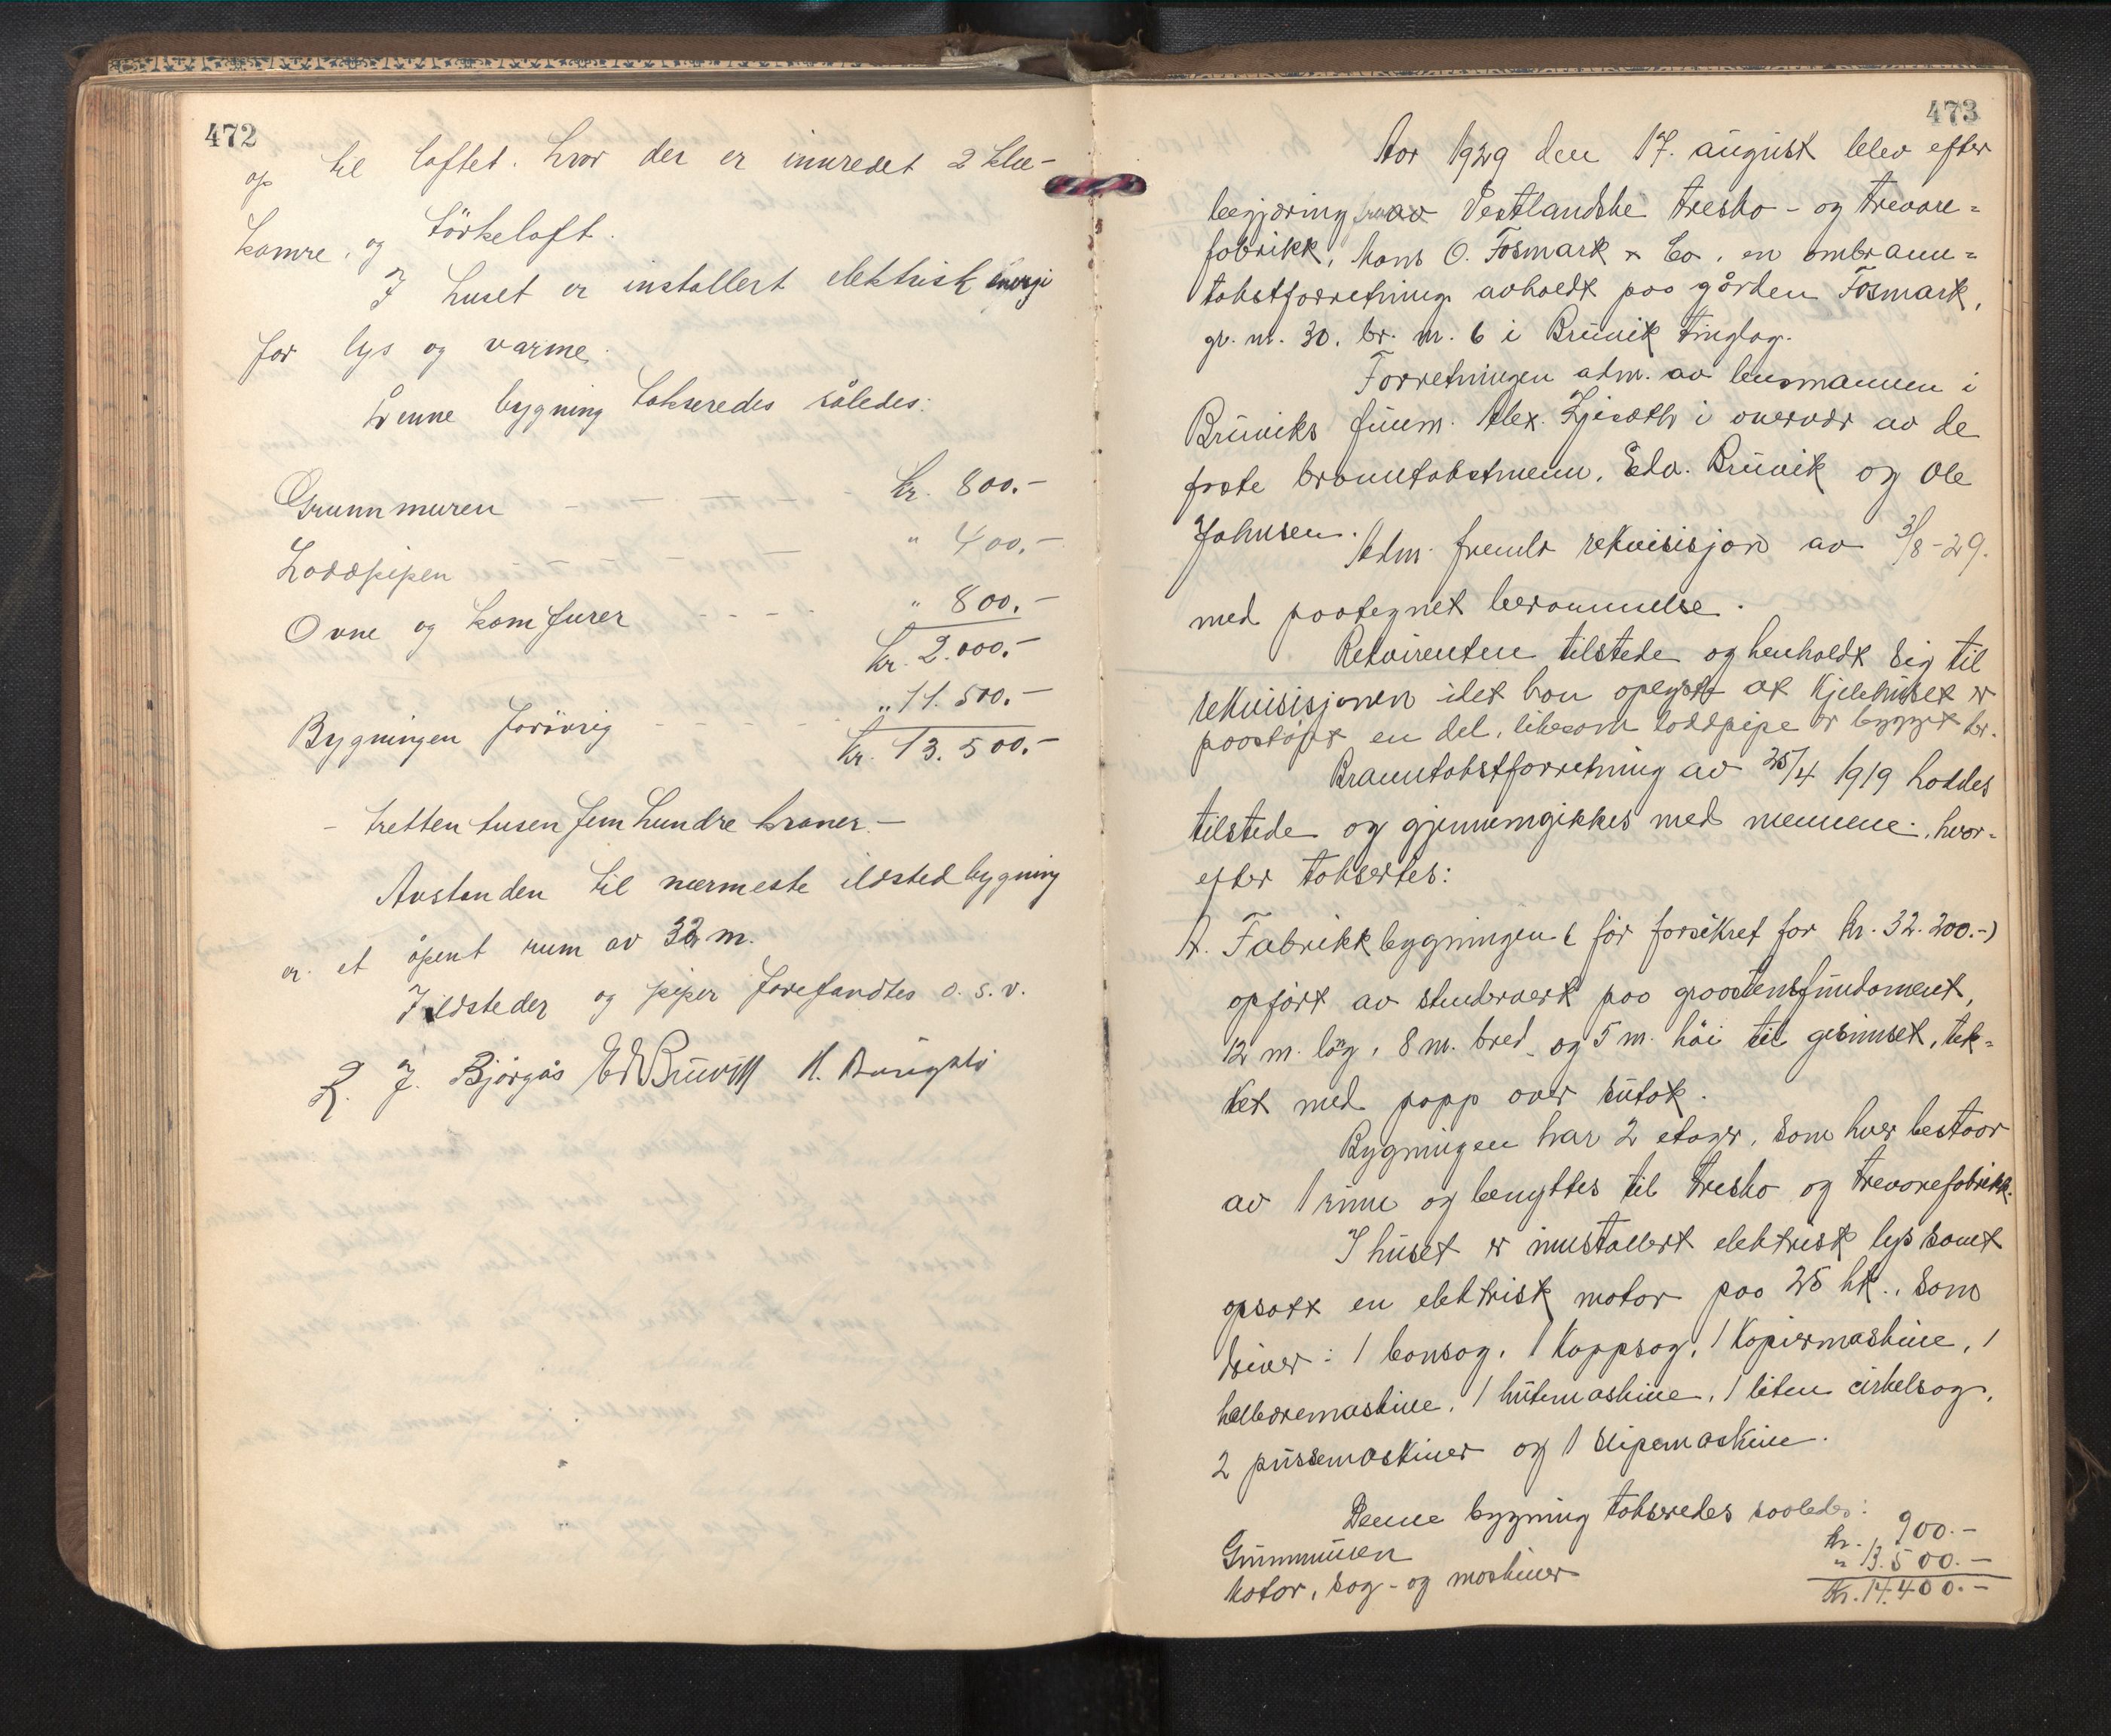 472
op til loftet. hvor der er innredet 2 klæ-
kamre, og törkeloft.
I huset er installert elektrisk energi
for lys og varme.
Denne bygning takseredes således:
Grunnmuren - - - kr. 800.-
Loddpipen " 400.-
Ovne og komfurer - - - - " 800.-
kr. 2.000.-
Bygningen forövrig - - - - " 11.500.-
kr. 13.500.-
- tretten tusen fem hundre kroner.-
Avstanden til nærmeste ildstedbygning
er et åpent rum av 32 m.
Ildsteder og piper forefandtes o.s.v.
L. J. Bjørgås Ed Bruvik
473
Aar 1929 den 17. august blev efter
begjæring av Vestlandske tresko- og trevare=
fabrikk, Mons O. Fosmark & Co, en ombrann=
takstforretning avholdt paa gården Fosmark,
gr. nr. 30, br. nr. 6 i Bruvik tinglag.
Forretningen adm. av lensmannen i
Bruviks Alex. i overvær av de
faste branntakstmenn, Edv. Bruvik og Ole
Johnsen.
Adm. fremla rekvisisjon av 3/8-29.
med paategnet berammelse.
Rekvirenten tilstede og henholdt sig til
rekvisisjonen idet han oplyste at kjelehuset er
paastöpt en del, likesom loddpipe er bygget her.
Branntakstforretning av 25/4 1919 hoddes
tilstede og gjennemgikkes med mennene, hvor-
efter takseredes:
A. Fabrikkbygningen (för forsikret for kr. 32.200.-)
opfört av stenderverk paa graastensfundament,
12 m. lang, 8 m. bred og 5 m. höi til gesimset, tek=
ket med papp over sutak.
Bygningen har 2 etager, som hver bestaar
av 1 rum og benyttes til tresko og trevarefabrikk.
I huset er innstallert elektrisk lys samt
opsatt en elektrisk motor paa 25 hk., som
driver: 1 bansag, 1 kappsag, 1 kopiermaskine, 1
hælboremaskine, 1 hulemaskine, 1 liten cirkelsag,
2 pussemaskiner og 1 slipemaskine.
Denne bygning takseredes saaledes:
Grunnmuren kr. 900.-
Motor, sag- og maskiner " 13.500.-
Kr. 14.400.-